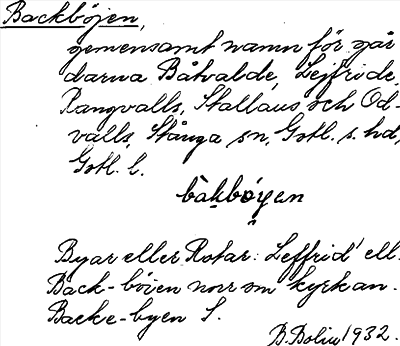 Backböjen,
gemensamt namn för går-
darna Båtvalde, Lejfride,
Rangvalls, Stallaus och Od-
valls, Stånga sn, Gotl. s. hd,
Gotl. l.
bakböyen
Byar eller Rotar: Leffrid' ell.
Back-böien norr om kyrkan.
Backe-byen S.
B. Bolin 1932.